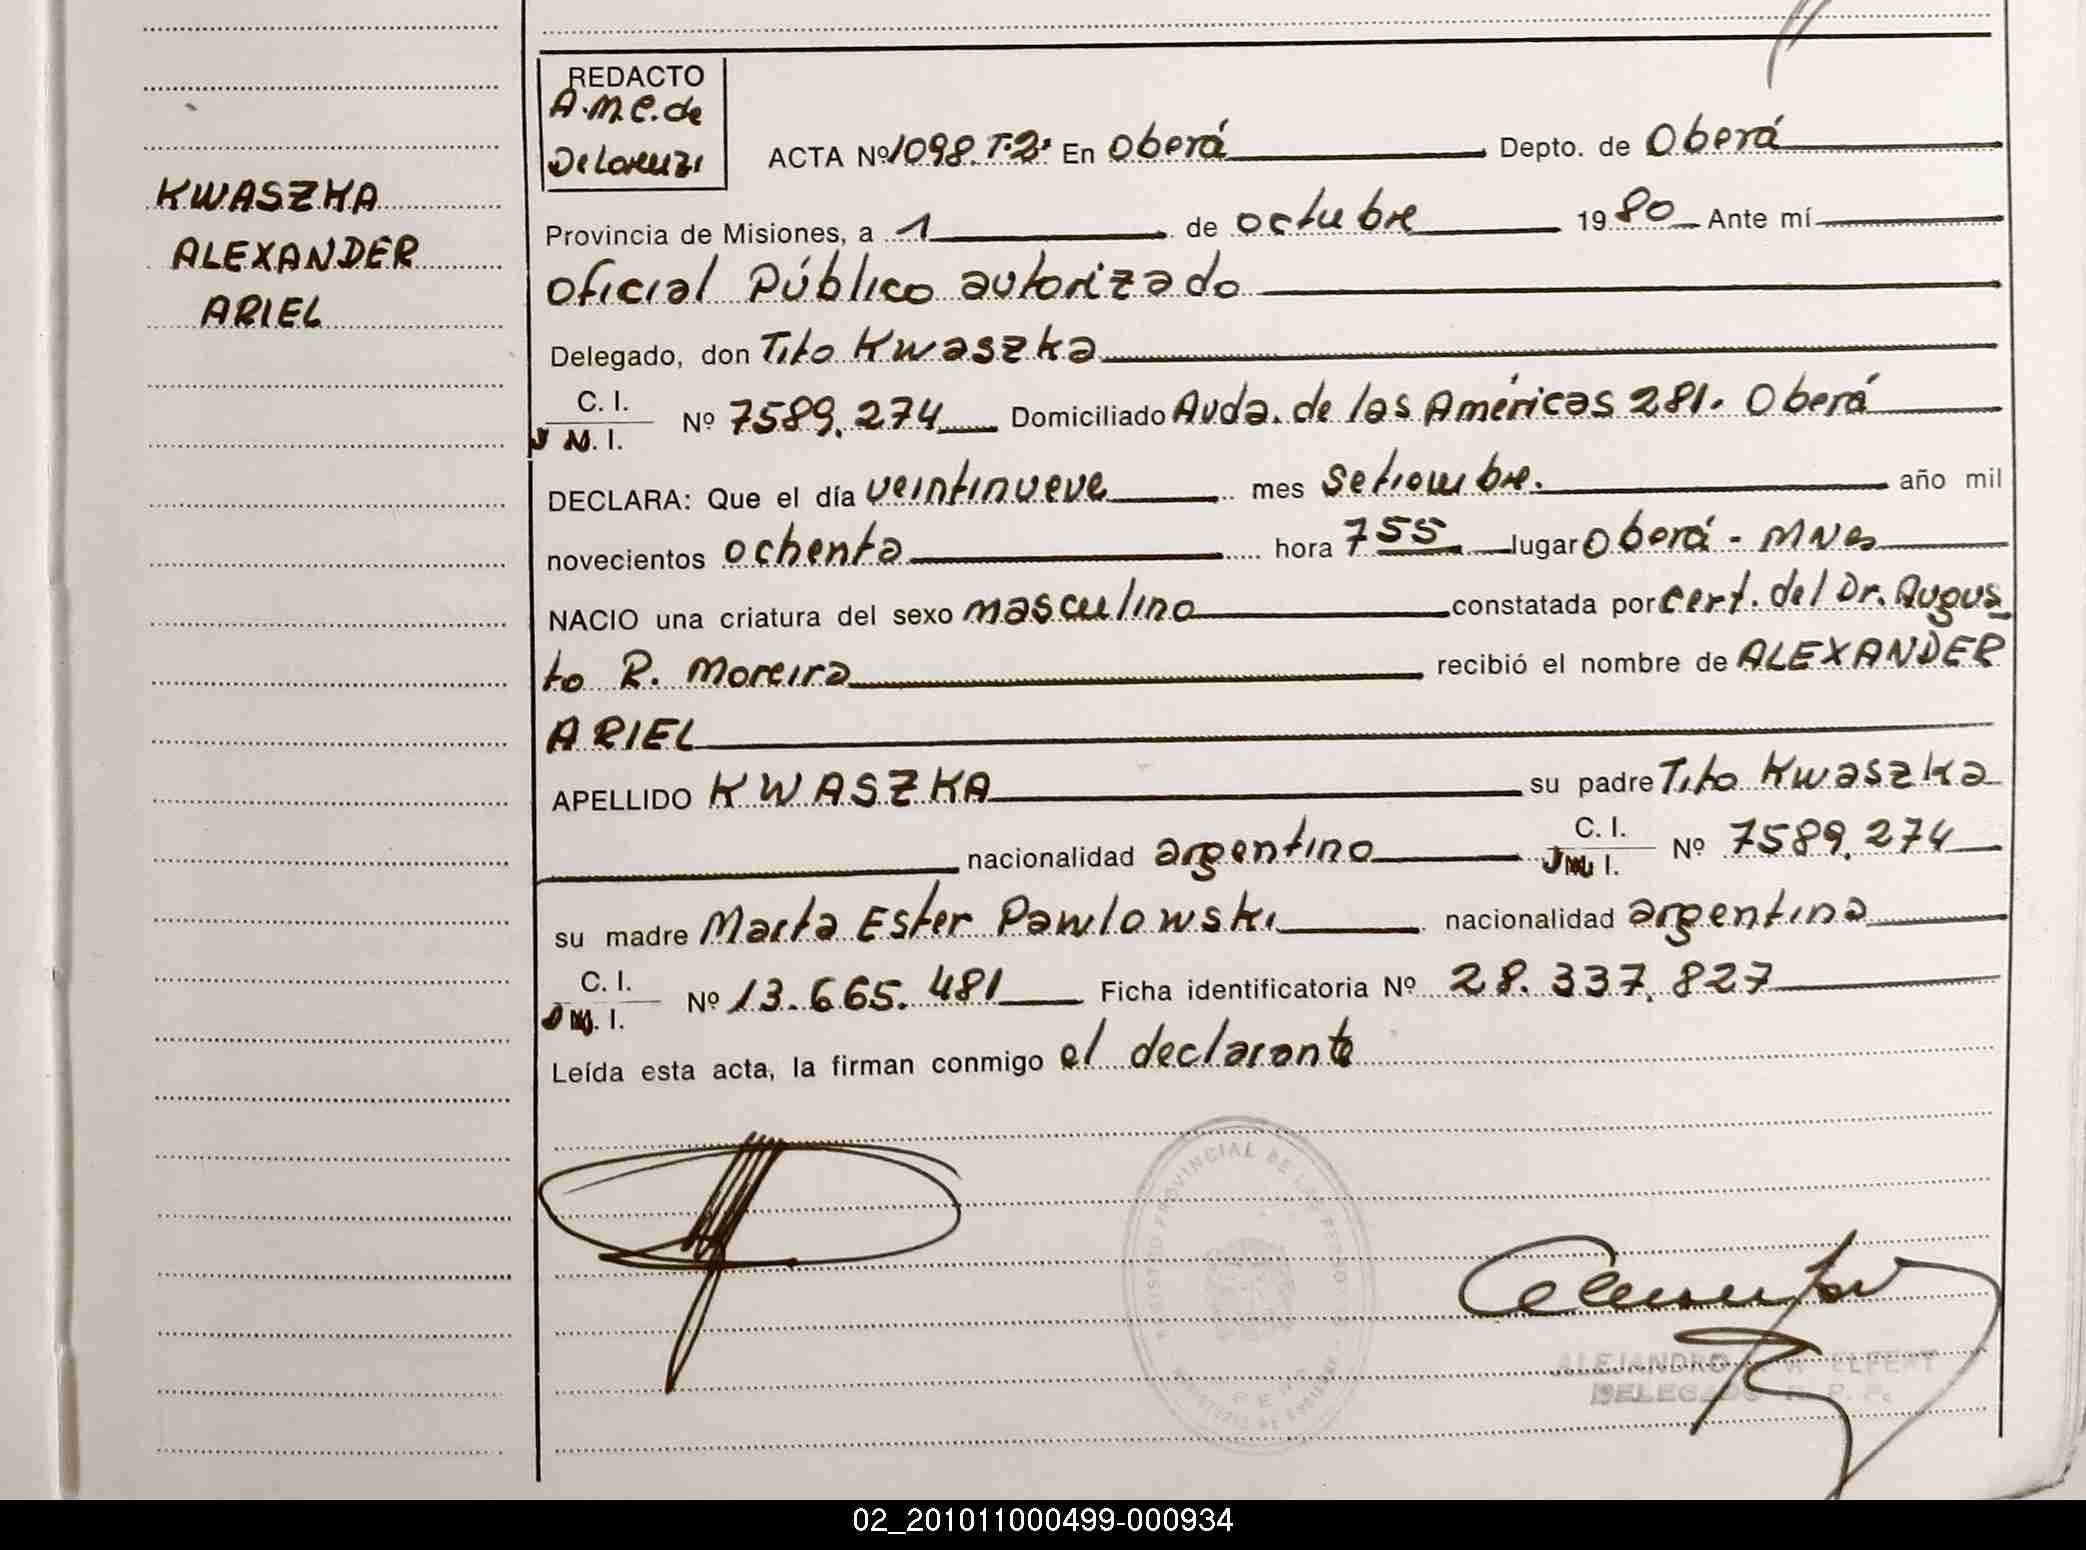 REDACTO
A.M.C. de
De Lorenzi
ACTA Nº 1098. T-3. En Oberá Depto. de Oberá
KWASZKA
ALEXANDER
ARIEL
Provincia de Misiones, a 1 de octubre 1980 Ante mí
Oficial Público autorizado
Delegado, don Tito Kwaszka
C. I.
M. I. Nº 7589.274 Domiciliado Avda. de las Américas 281. Oberá
DECLARA: Que el día veintinueve mes setiembre. año mil
novecientos ochenta hora 755 lugar Oberá - Mnes
NACIO una criatura del sexo masculino constatada por cert. del Dr. Augus
to R. Moreira recibió el nombre de ALEXANDER
ARIEL
APELLIDO KWASZKA su padre Tito Kwaszka
nacionalidad argentino C. I. Nº 7589.274
su madre Marta Ester Pawlowski nacionalidad argentina
C. I. Nº 13.665.481 Ficha identificatoria Nº 28.337.827
Leída esta acta, la firman conmigo el declarante
REGISTRO PROVINCIAL DE LAS PERSONAS
MINISTERIO DE GOBIERNO
ALEJANDRO ELFERT
DELEGADO R. P. P.
02_201011000499-000934